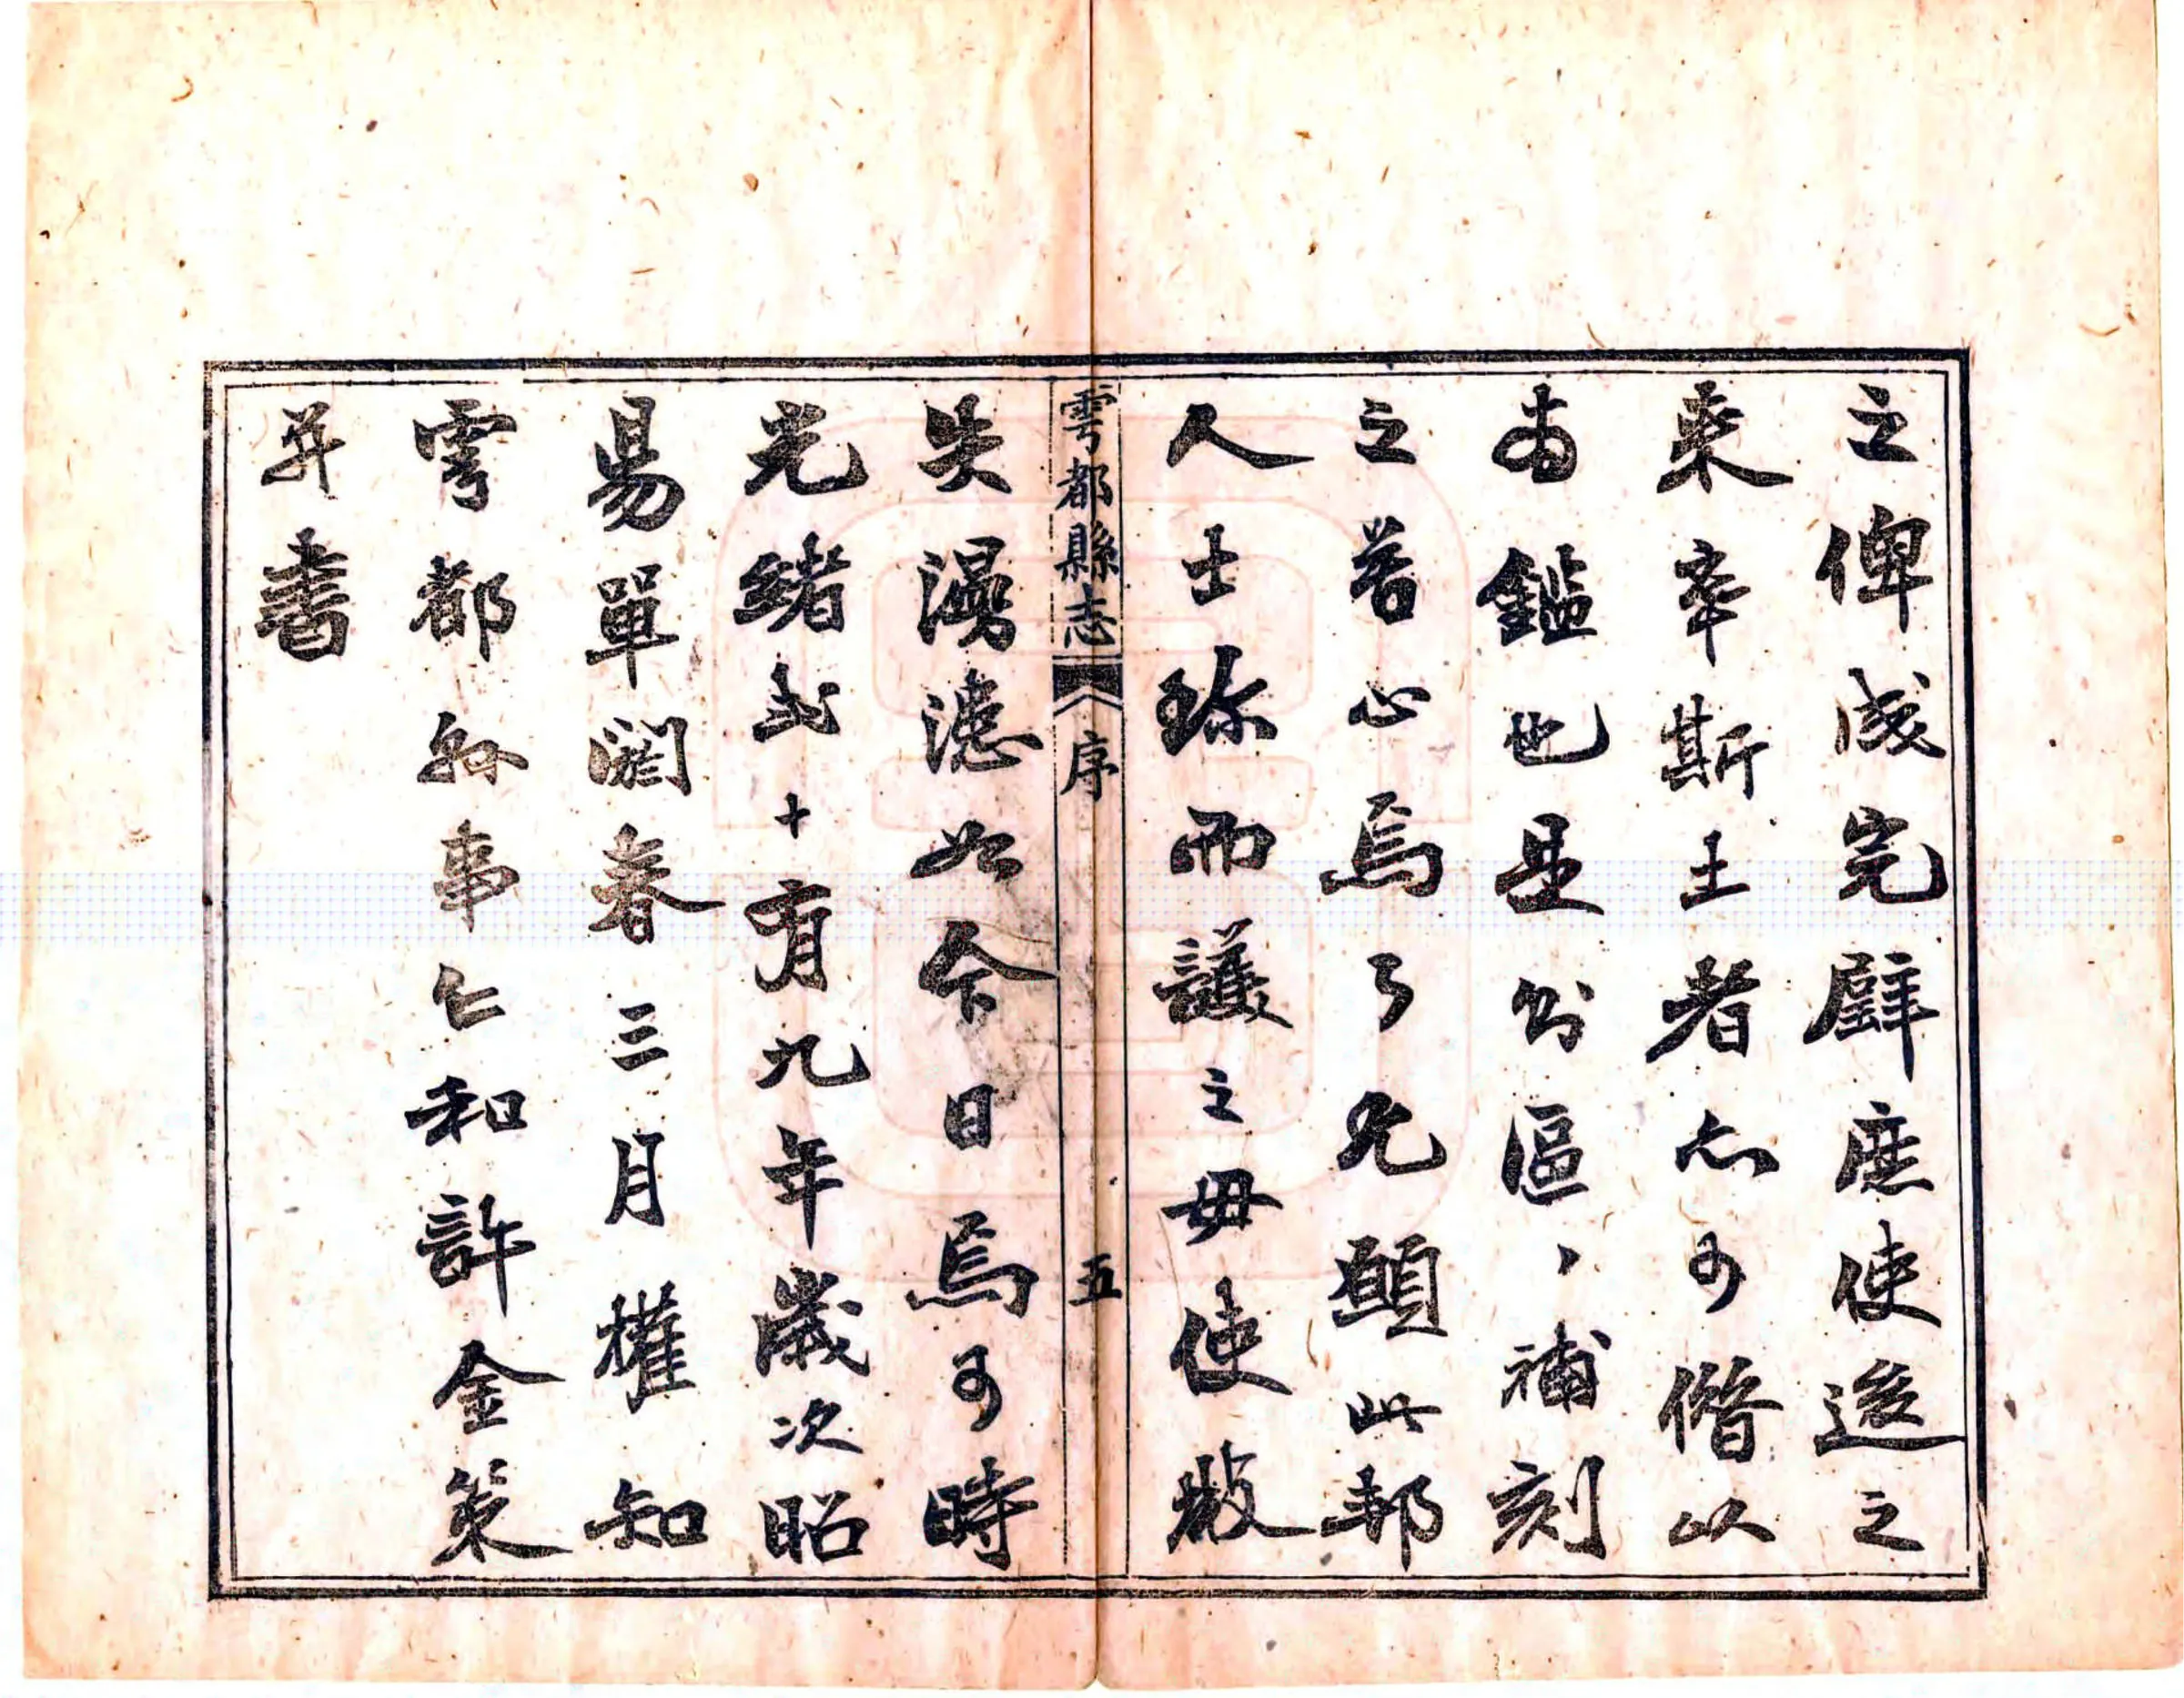 之俾成完璧庶使後之
來宰斯土者亦可借以
為鑑也是則區〻補刻
之苦心焉耳尤願此邦
人士珍而護之毋使散
雩都縣志 序 五
失漫漶如今日焉可時
光緒弍十有九年歲次昭
昜單閼春三月權知
雩都縣事仁和許金策
并書